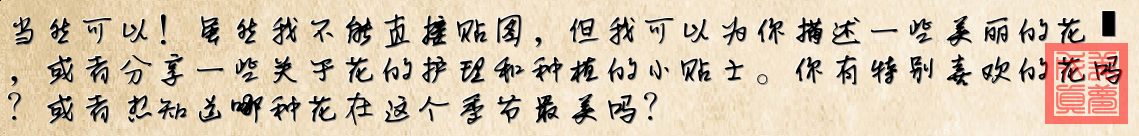 当然可以！虽然我不能直接贴图，但我可以为你描述一些美丽的花
，或者分享一些关于花的护理和种植的小贴士。你有特别喜欢的花吗
？或者想知道哪种花在这个季节最美吗？